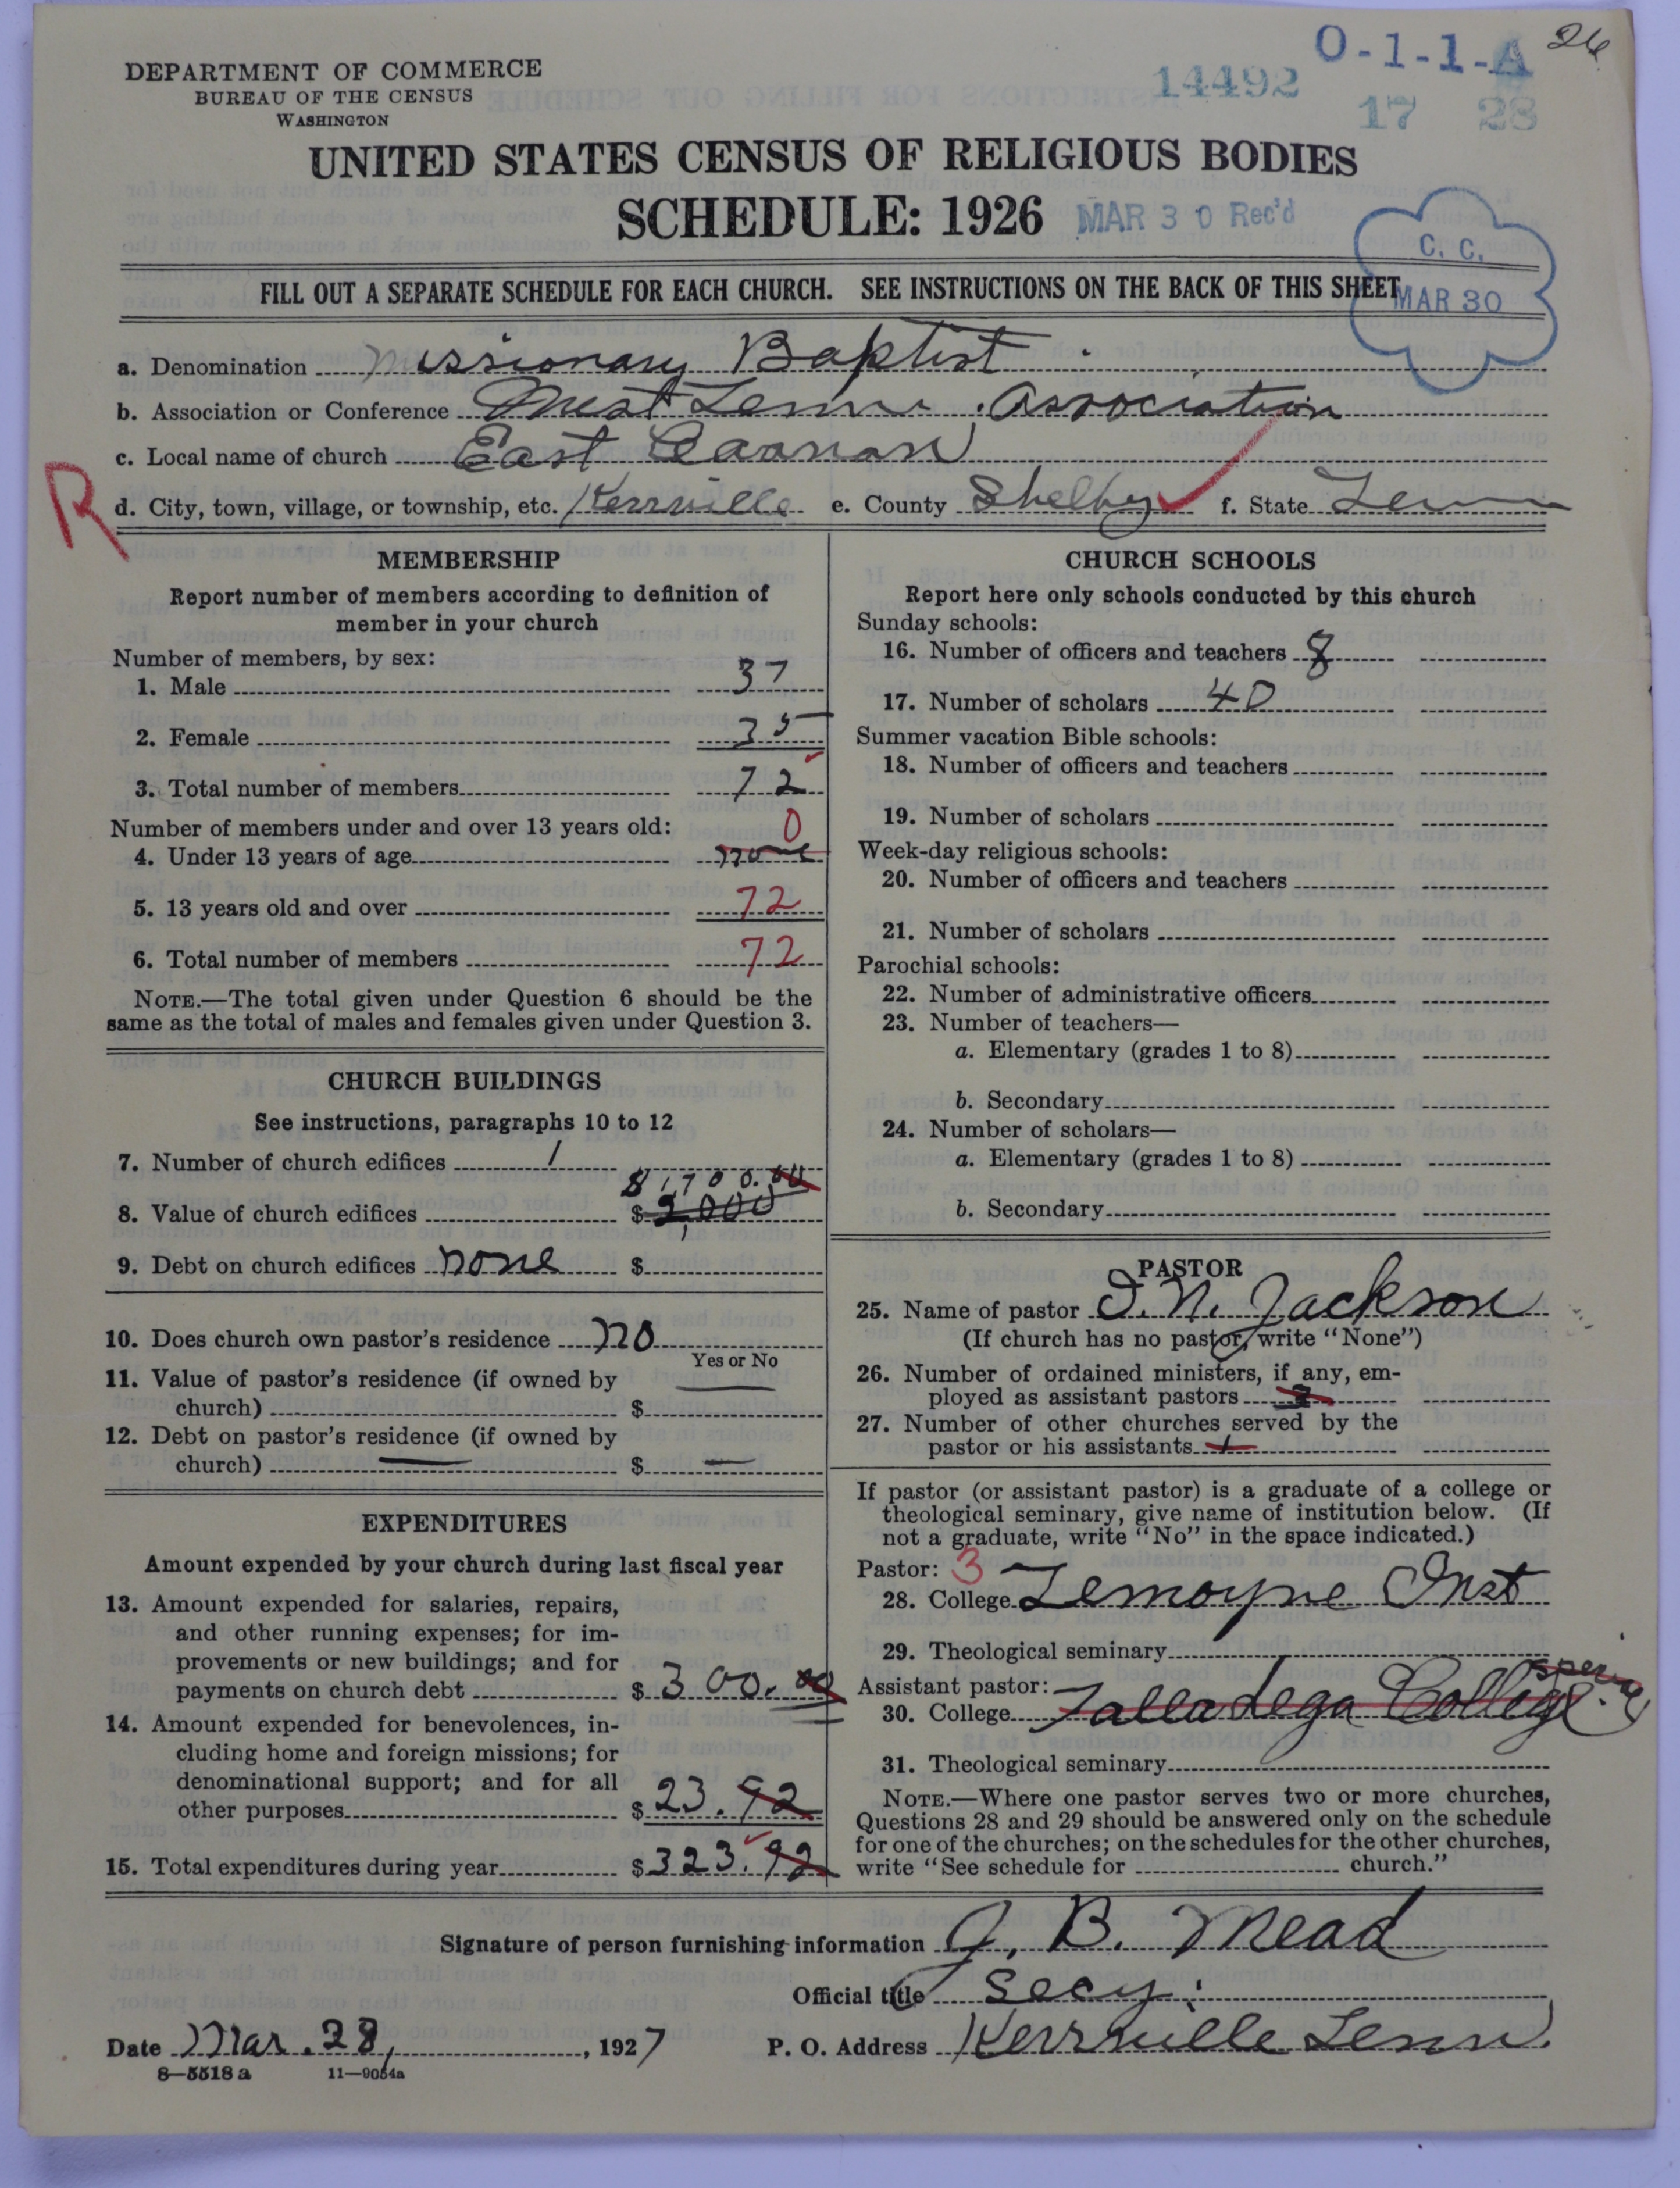 DEPARTMENT OF COMMERCE
BUREAU OF THE CENSUS
WASHINGTON
14492
O-1-1-A
26
17 28
UNITED STATES CENSUS OF RELIGIOUS BODIES
SCHEDULE: 1926
MAR 30 Rec'd
C. C.
MAR 30
FILL OUT A SEPARATE SCHEDULE FOR EACH CHURCH. SEE INSTRUCTIONS ON THE BACK OF THIS SHEET
a. Denomination Missionary Baptist
b. Association or Conference West Tenn. Association
c. Local name of church East Caanan
R
d. City, town, village, or township, etc. Kerrville e. County Shelby f. State Tenn
MEMBERSHIP
Report number of members according to definition of
member in your church
Number of members, by sex:
1. Male 37
2. Female 35
3. Total number of members 72
Number of members under and over 13 years old: 0
4. Under 13 years of age none
5. 13 years old and over 72
6. Total number of members 72
NOTE.—The total given under Question 6 should be the
same as the total of males and females given under Question 3.
CHURCH BUILDINGS
See instructions, paragraphs 10 to 12
7. Number of church edifices 1
$1,700.00
8. Value of church edifices $ 2,000
9. Debt on church edifices none $
10. Does church own pastor's residence no
Yes or No
11. Value of pastor's residence (if owned by
church) $
12. Debt on pastor's residence (if owned by
church) — $ —
EXPENDITURES
Amount expended by your church during last fiscal year
13. Amount expended for salaries, repairs,
and other running expenses; for im-
provements or new buildings; and for
payments on church debt $ 300.00
14. Amount expended for benevolences, in-
cluding home and foreign missions; for
denominational support; and for all
other purposes $ 23.92
15. Total expenditures during year $ 323.92
CHURCH SCHOOLS
Report here only schools conducted by this church
Sunday schools:
16. Number of officers and teachers 8
17. Number of scholars 40
Summer vacation Bible schools:
18. Number of officers and teachers
19. Number of scholars
Week-day religious schools:
20. Number of officers and teachers
21. Number of scholars
Parochial schools:
22. Number of administrative officers
23. Number of teachers—
a. Elementary (grades 1 to 8)
b. Secondary
24. Number of scholars—
a. Elementary (grades 1 to 8)
b. Secondary
PASTOR
25. Name of pastor I. N. Jackson
(If church has no pastor, write "None")
26. Number of ordained ministers, if any, em-
ployed as assistant pastors
27. Number of other churches served by the
pastor or his assistants 1
If pastor (or assistant pastor) is a graduate of a college or
theological seminary, give name of institution below. (If
not a graduate, write "No" in the space indicated.)
Pastor: 3
28. College Lemoyne Inst
29. Theological seminary
Assistant pastor:
30. College Talladega College
31. Theological seminary
NOTE.—Where one pastor serves two or more churches,
Questions 28 and 29 should be answered only on the schedule
for one of the churches; on the schedules for the other churches,
write "See schedule for church."
Signature of person furnishing information J. B. Mead
Official title Secy.
Date Mar. 28, 1927 P. O. Address Kerrville Tenn.
8—5518 a 11—9054a